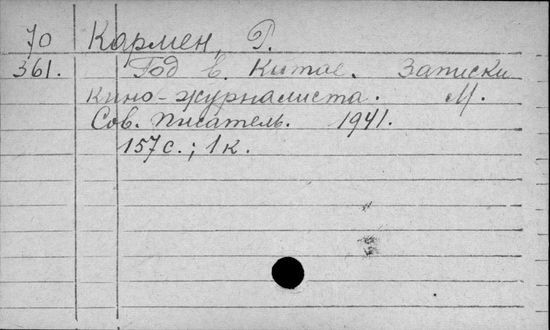 70 Кармен, Р.
361. Год в Китае. Записки
кино-журналиста. М.
Сов. писатель. 1941.
157с.; 1к.